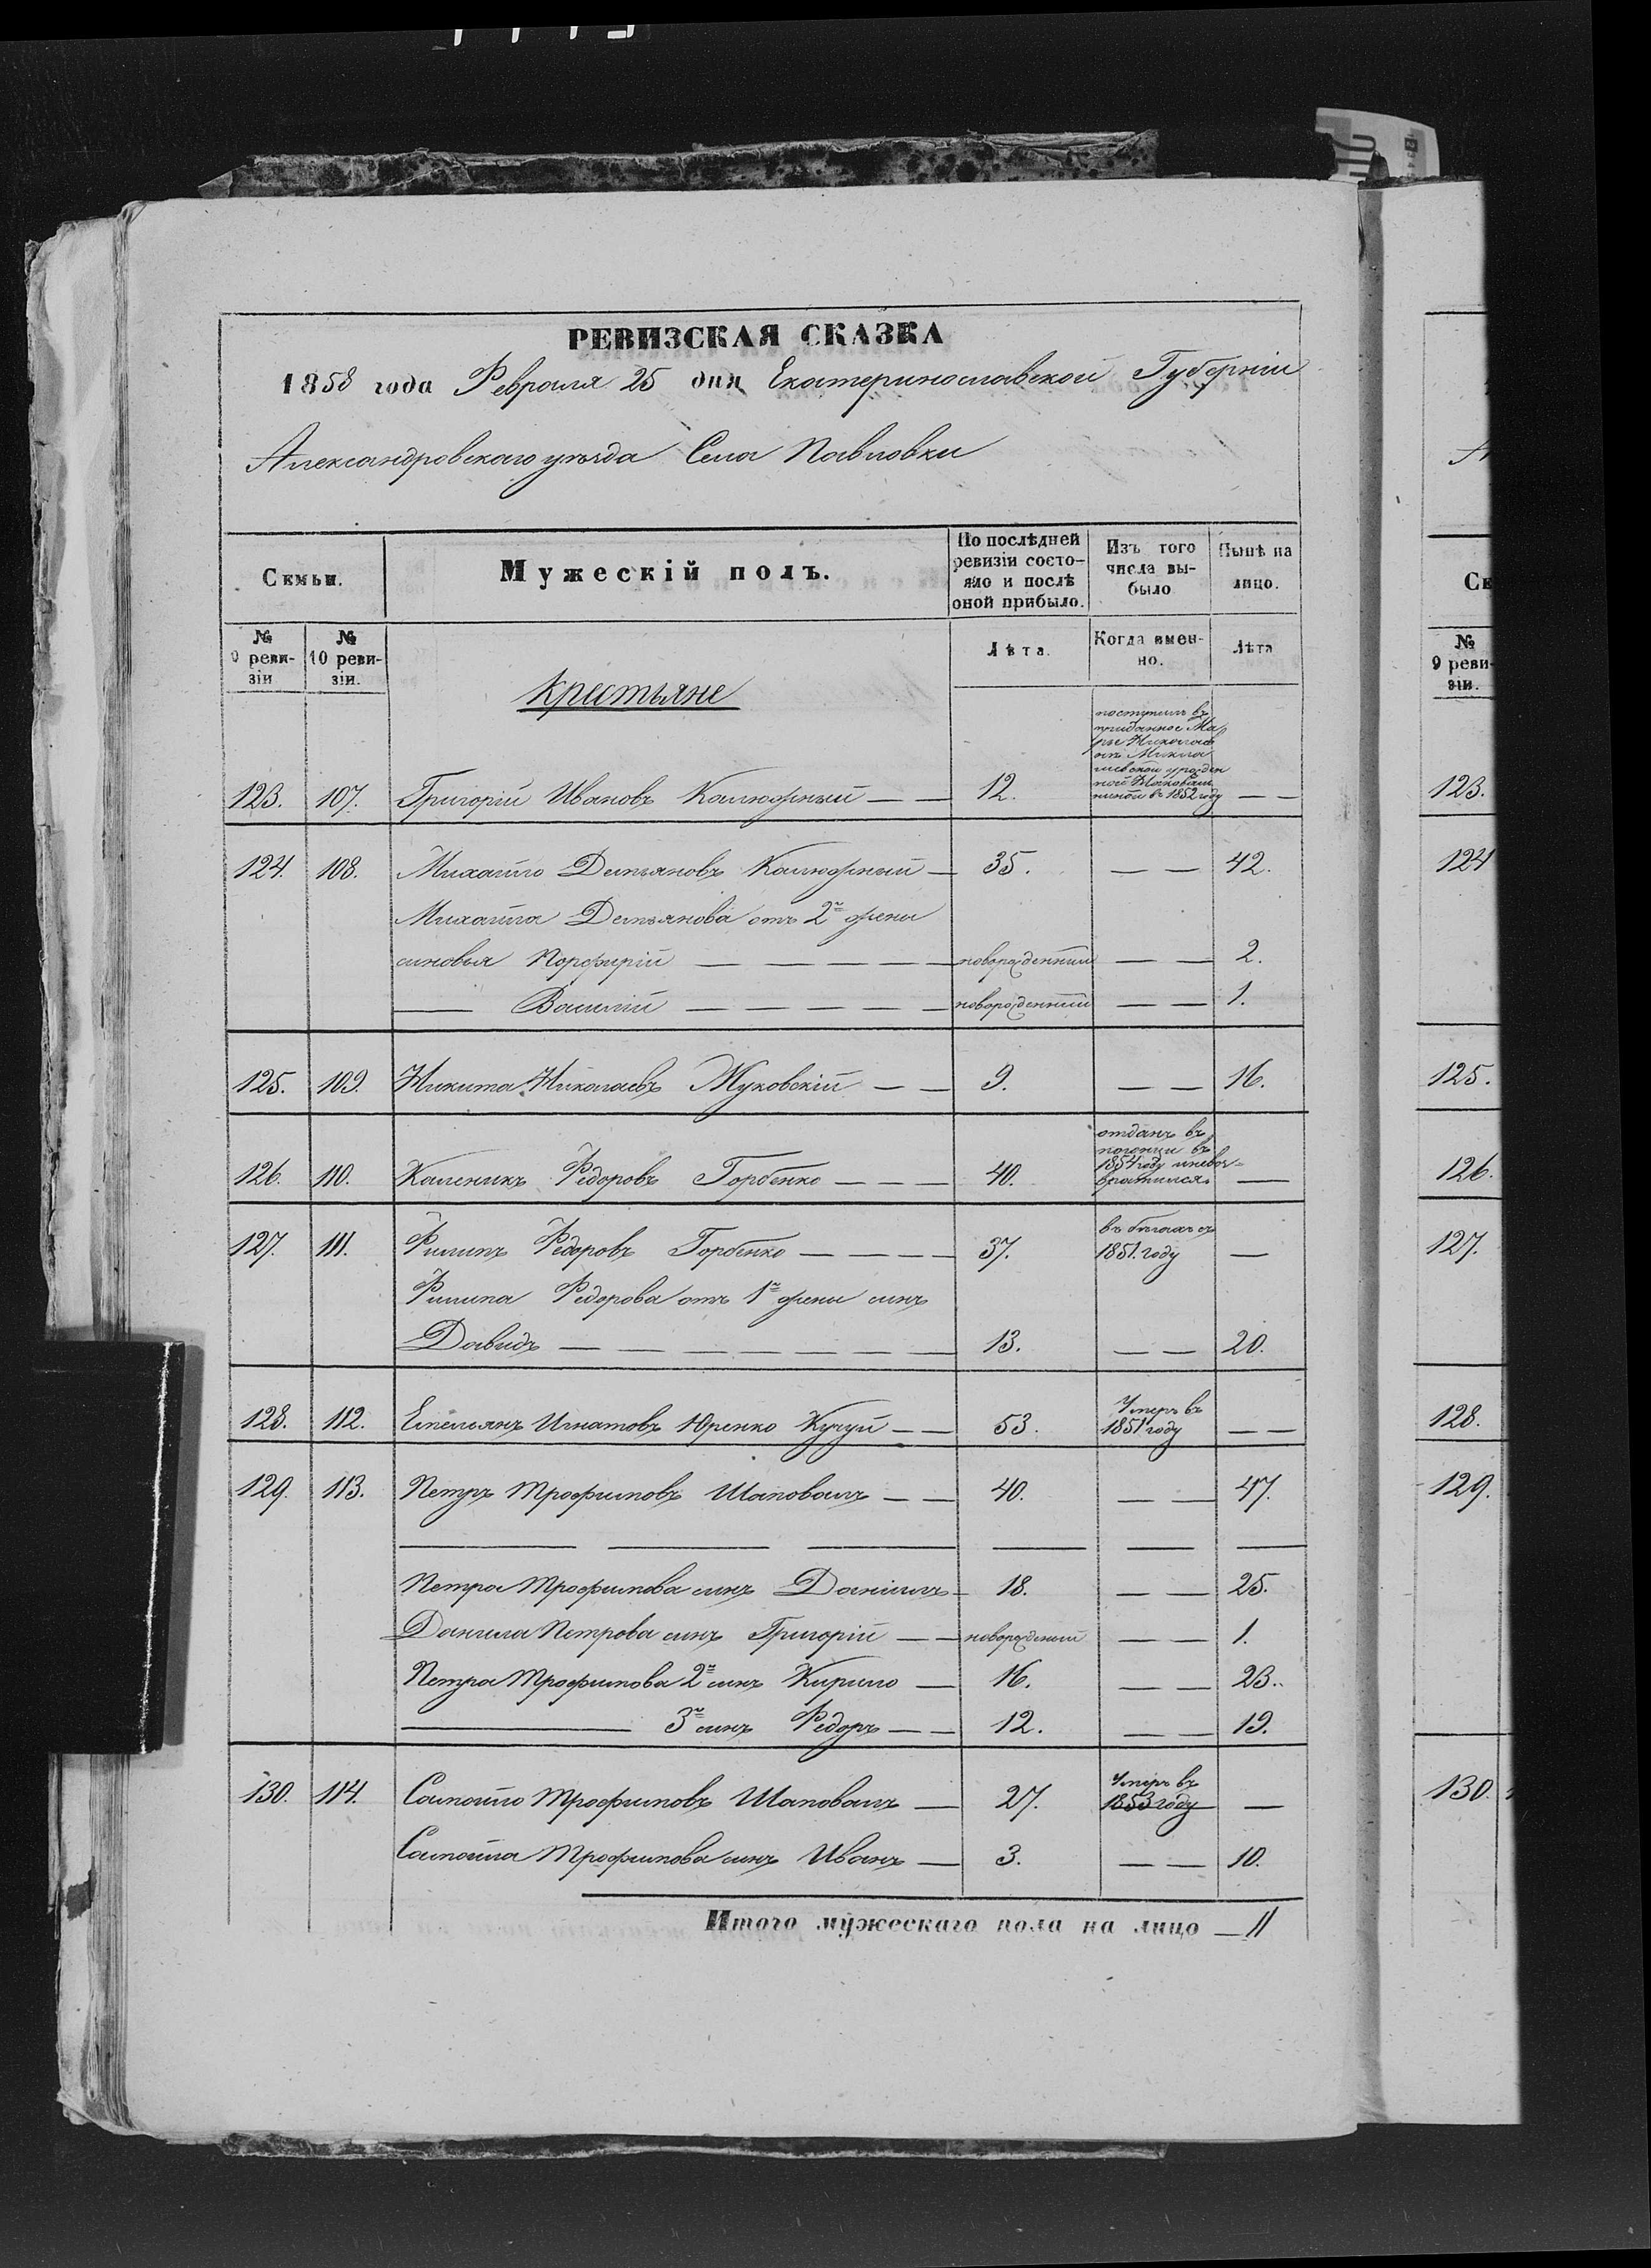 РЕВИЗСКАЯ СКАЗКА
1858 года Февраля 25 дня Екатеринославской Губерніи
Александровскаго уѣзда Села Павловки
Семьи.
Мужескій полъ.
По послѣдней ревизіи состояло и послѣ оной прибыло.
Изъ того числа выбыло
Нынѣ на лицо.
№ 9 ревизіи
№ 10 ревизіи.
Лѣта.
Когда именно.
Лѣта
Крестьяне
поступилъ въ
приданное Ма
рье Николав
ной въ 1852 году
123. 107. Григорій Ивановъ Калюжный — — 12. — —
124. 108. Михайло Демьяновъ Калюжный — 35. — — 42.
Михайла Демьянова отъ 2й жены
сыновья Порфирій — — — — — новорожденный — — 2.
— Василій — — — — — новорожденный — — 1.
125. 109. Никита Николаевъ Жуковскій — — 9. — — 16.
отданъ въ
погонци въ
1854 году иневоз=
вратился
126. 110. Каленикъ Федоровъ Горбенко — — — 40. —
въ бѣгахъ съ
1851. году
127. 111. Филипъ Федоровъ Горбенко — — — — 37. —
Филипа Федорова отъ 1й жены сынъ
Давидъ — — — — — — — — 13. — — 20.
Умеръ въ
1851 году
128. 112. Емельянъ Игнатовъ Юренко Кучуй — — 53. — —
129. 113. Петръ Трофимовъ Шаповалъ — — 40. — — 47.
— — — — — —
Петра Трофимова сынъ Даніилъ — 18. — — 25.
Данила Петрова сынъ Григорій — — новорожденый — — 1.
Петра Трофимова 2й сынъ Кирило — 16. — — 23.
— 3й сынъ Федоръ — — 12. — — 19.
Умеръ въ
1853 году
130. 114. Самойло Трофимовъ Шаповалъ — 27. —
Самойла Трофимова сынъ Иванъ — 3. — — 10.
Итого мужескаго пола на лицо — 11
№
9 реви-
зіи.
123.
124
125.
126.
127.
128.
129.
130.